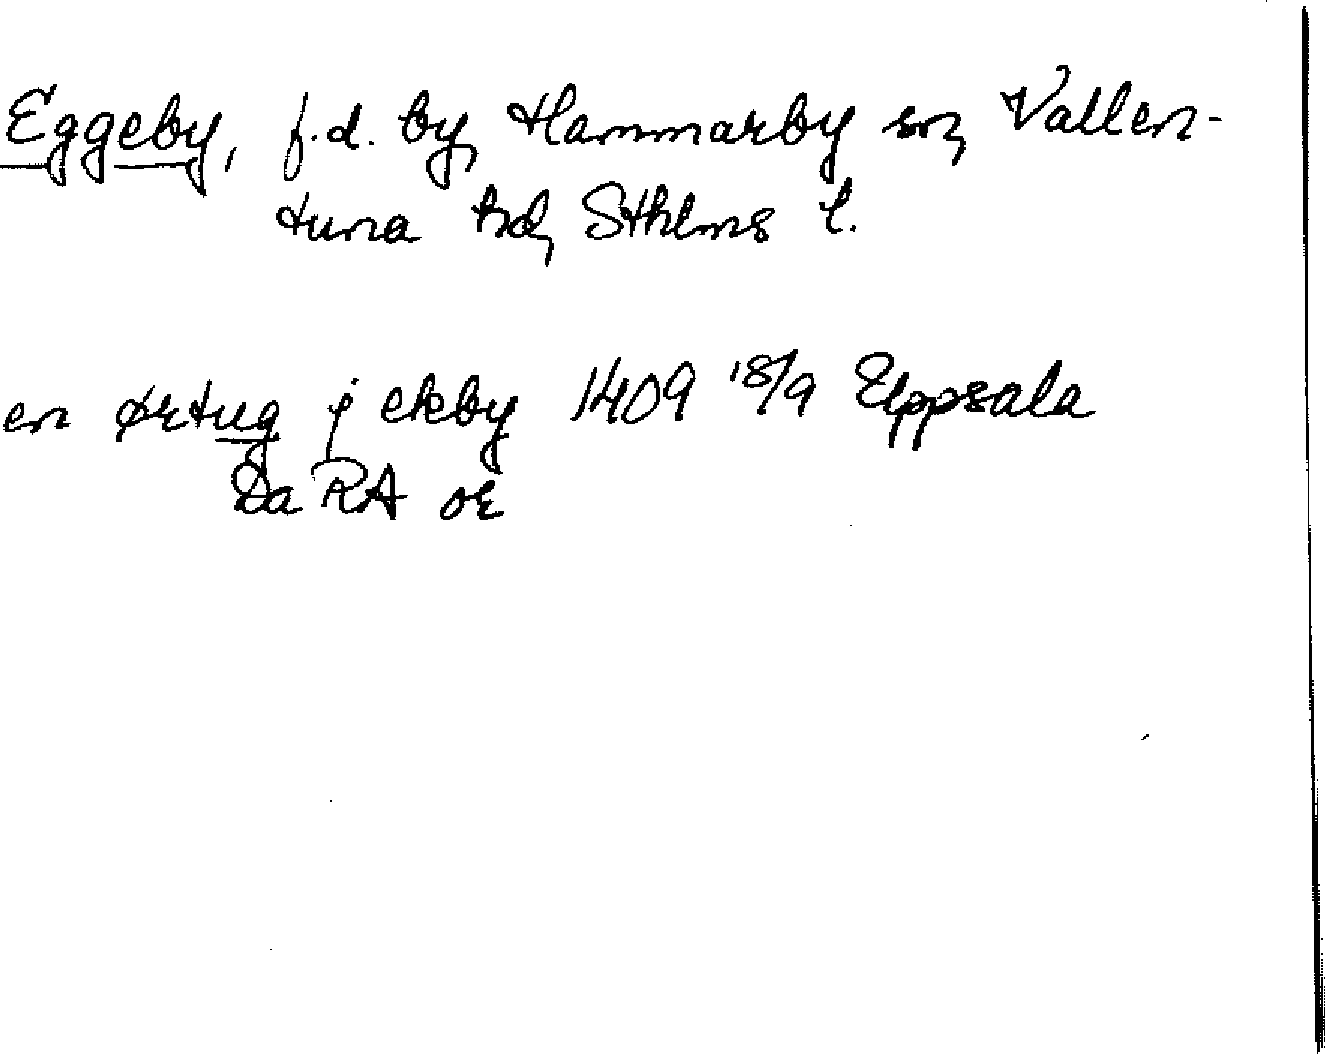 Eggeby, f.d. by, Hammarby sn, Vallen-
tuna hd, Sthlms l.
en ørtug j ekeby 1409 18/9 Uppsala
Da RA or